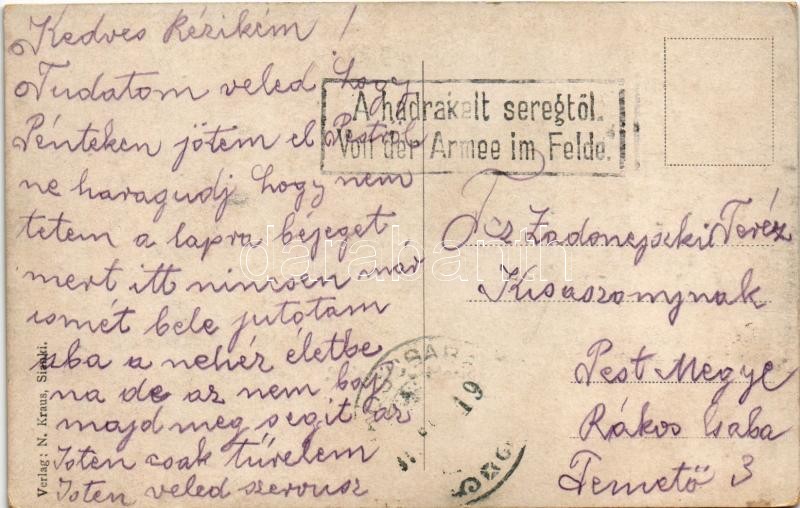 Kedves Rézikém!
Tudatom veled hogy
Pénteken jötem el Peströl
ne haragudj hogy nem
tetem a lapra béjeget
mert itt nincsen mar
ismét bele jutotam
abba a nehéz életbe
na de az nem baj
majd meg segit az
Isten csak türelem
Isten veled szervusz
A hadrakelt seregtől.
Von der Armee im Felde.
Tcz Zadonejszki Teréz
Kisaszonynak
Pest Megye
Rákos Csaba
Temető 3
19
Verlag: N. Kraus, Sianki.
darabanth.com